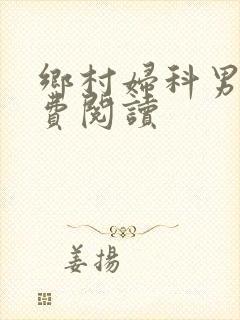 鄉村婦科男
費閱讀
姜揚